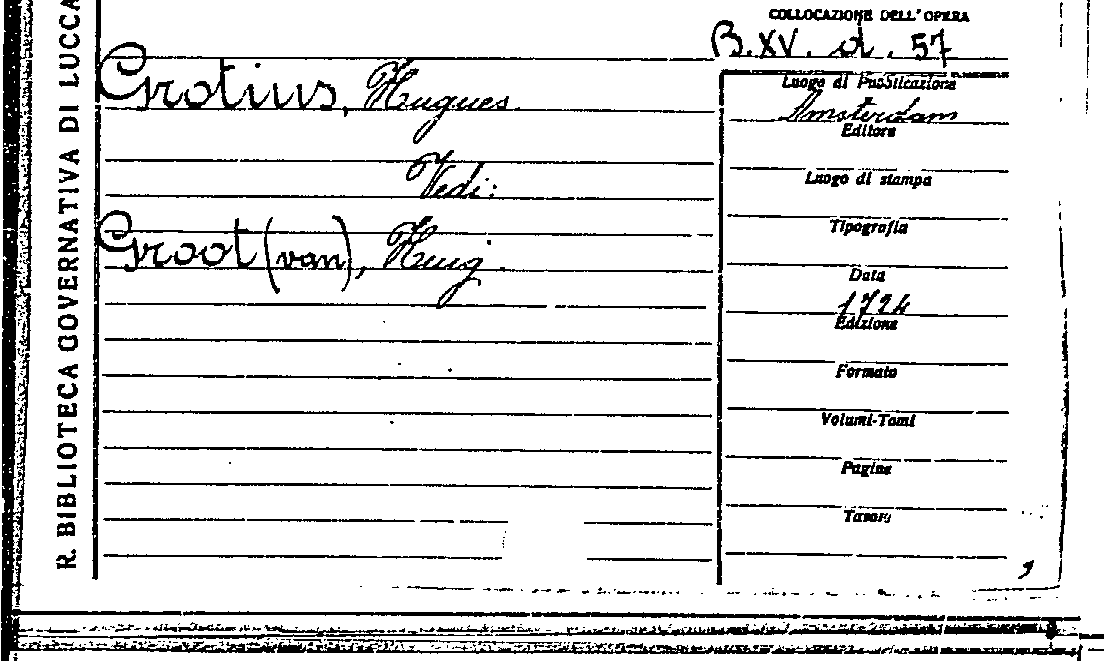 R. BIBLIOTECA GOVERNATIVA DI LUCCA
COLLOCAZIONE DELL'OPERA
B. XV. d. 57
Grotius, Hugues.
Vedi:
Groot (van), Huig.
Luogo di Pubblicazione
Amsterdam
Editore
Luogo di stampa
Tipografia
Data
1724
Edizione
Formato
Volumi-Tomi
Pagine
Tavole